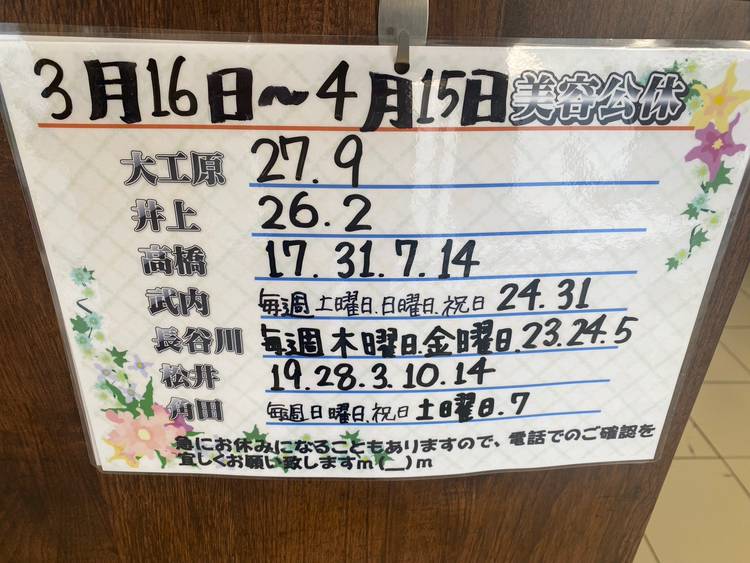 3月16日～4月15日美容公休
大工原 27.9
井上 26.2
高橋 17.31.7.14
武内 毎週土曜日.日曜日.祝日 24.31
長谷川 毎週木曜日.金曜日.23.24.5
松井 19.28.3.10.14
角田 毎週日曜日.祝日 土曜日.7
急にお休みになることもありますので、電話でのご確認を
宜しくお願い致しますm(__)m